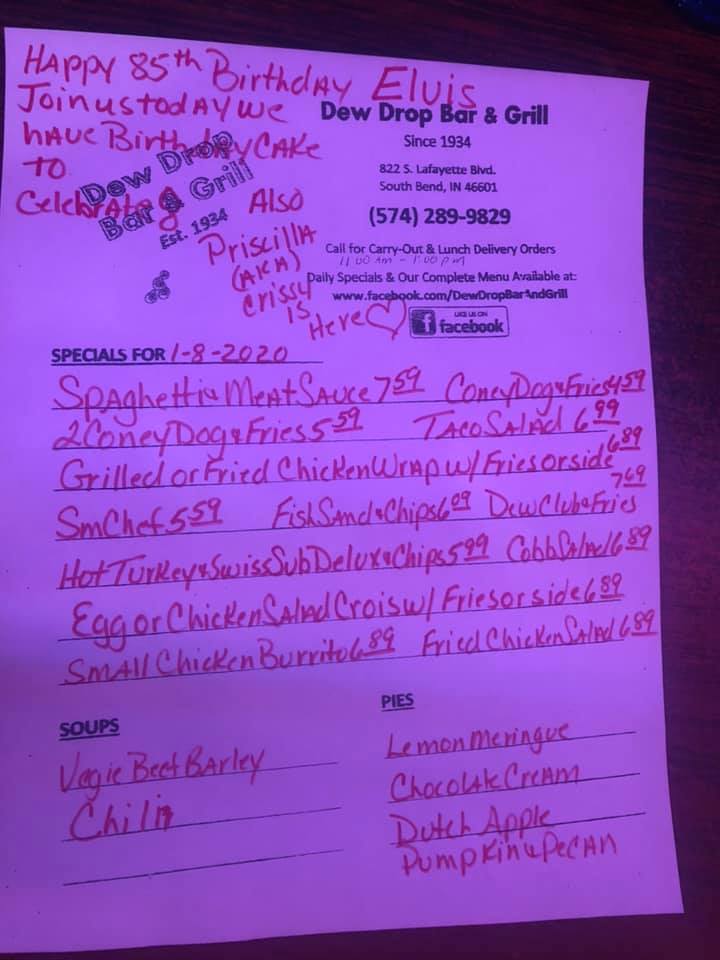 HAPPY 85th BirthdAY Elvis
Join us todAY we
hAve BirthdAY CAKe
TO
Celebrate
Also
Priscilla
(AKA)
Crissy
is
Here
Dew Drop
Bar & Grill
Est. 1934
Dew Drop Bar & Grill
Since 1934
822 S. Lafayette Blvd.
South Bend, IN 46601
(574) 289-9829
Call for Carry-Out & Lunch Delivery Orders
11:00 Am - 1:00 pm
Daily Specials & Our Complete Menu Available at:
www.facebook.com/DewDropBarAndGrill
LIKE US ON
facebook
SPECIALS FOR 1-8-2020
Spaghetti & Meat Sauce 7.59 Coney Dog & Fries 4.59
2 Coney Dog & Fries 5.59 Taco Salad 6.99
Grilled or Fried Chicken Wrap w/ Fries or side 6.89
Sm Chef 5.59 Fish Sand & Chips 6.09 Dew Club & Fries 7.69
Hot Turkey & Swiss Sub Delux & Chips 5.99 Cobb Salad 6.89
Egg or Chicken Salad Crois w/ Fries or side 6.89
Small Chicken Burrito 6.89 Fried Chicken Salad 6.89
SOUPS
Vegie Beef Barley
Chili
PIES
Lemon Meringue
Chocolate Cream
Dutch Apple
Pumpkin & Pecan